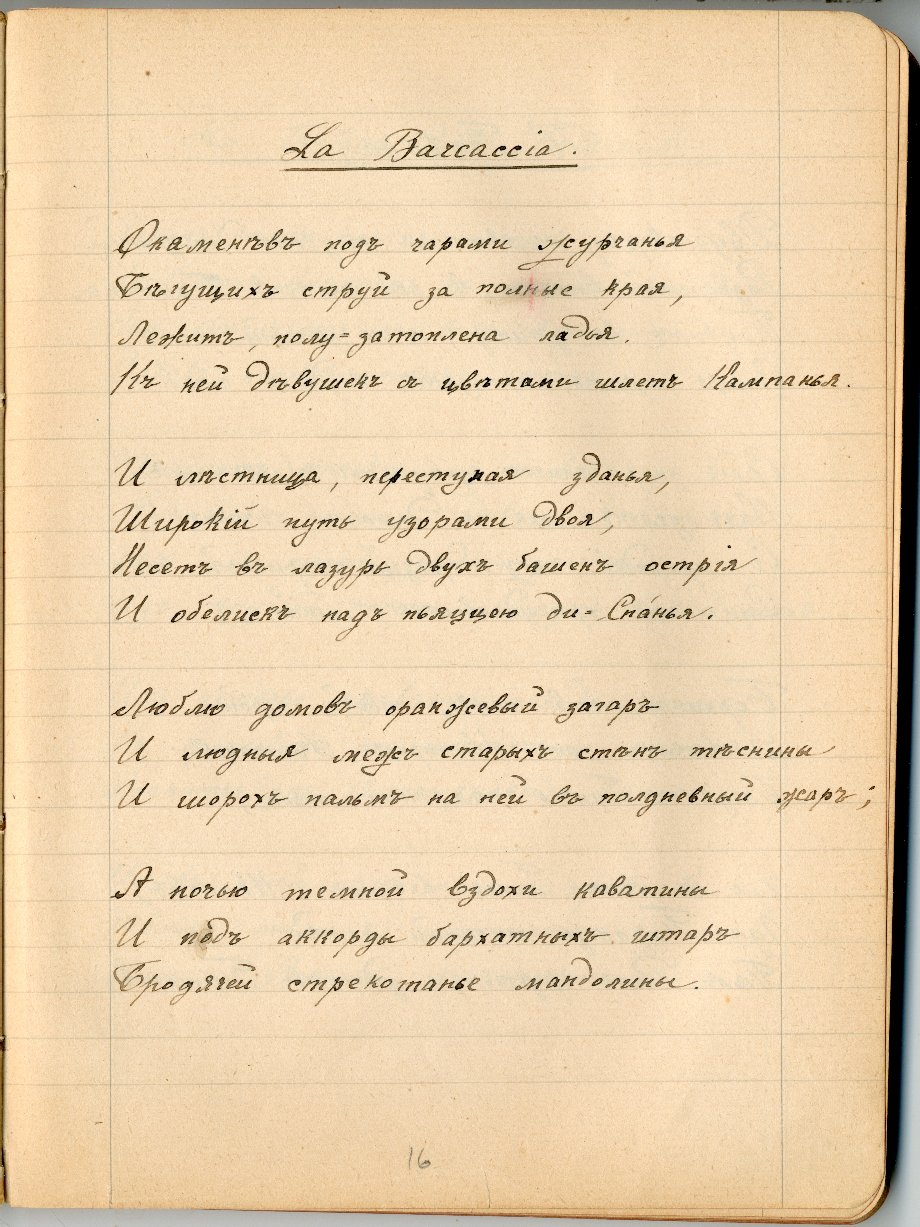 La Barcaccia.
Окаменѣвъ подъ чарами журчанья
Бѣгущихъ струй за полные края,
Лежитъ, полу=затоплена ладья.
Къ ней дѣвушекъ съ цвѣтами шлетъ Кампанья.
И лѣстница, переступая зданья,
Широкій путь узорами двоя,
Несетъ въ лазурь двухъ башенъ острія
И обелискъ надъ пьяццею ди=Спáнья.
Люблю домовъ оранжевый загаръ
И людныя межъ старыхъ стѣнъ тѣснины
И шорохъ пальмъ на ней въ полдневный жаръ;
А ночью темной вздохи каватины
И подъ аккорды бархатныхъ гитаръ
Бродячей стрекотанье мандолины.
16